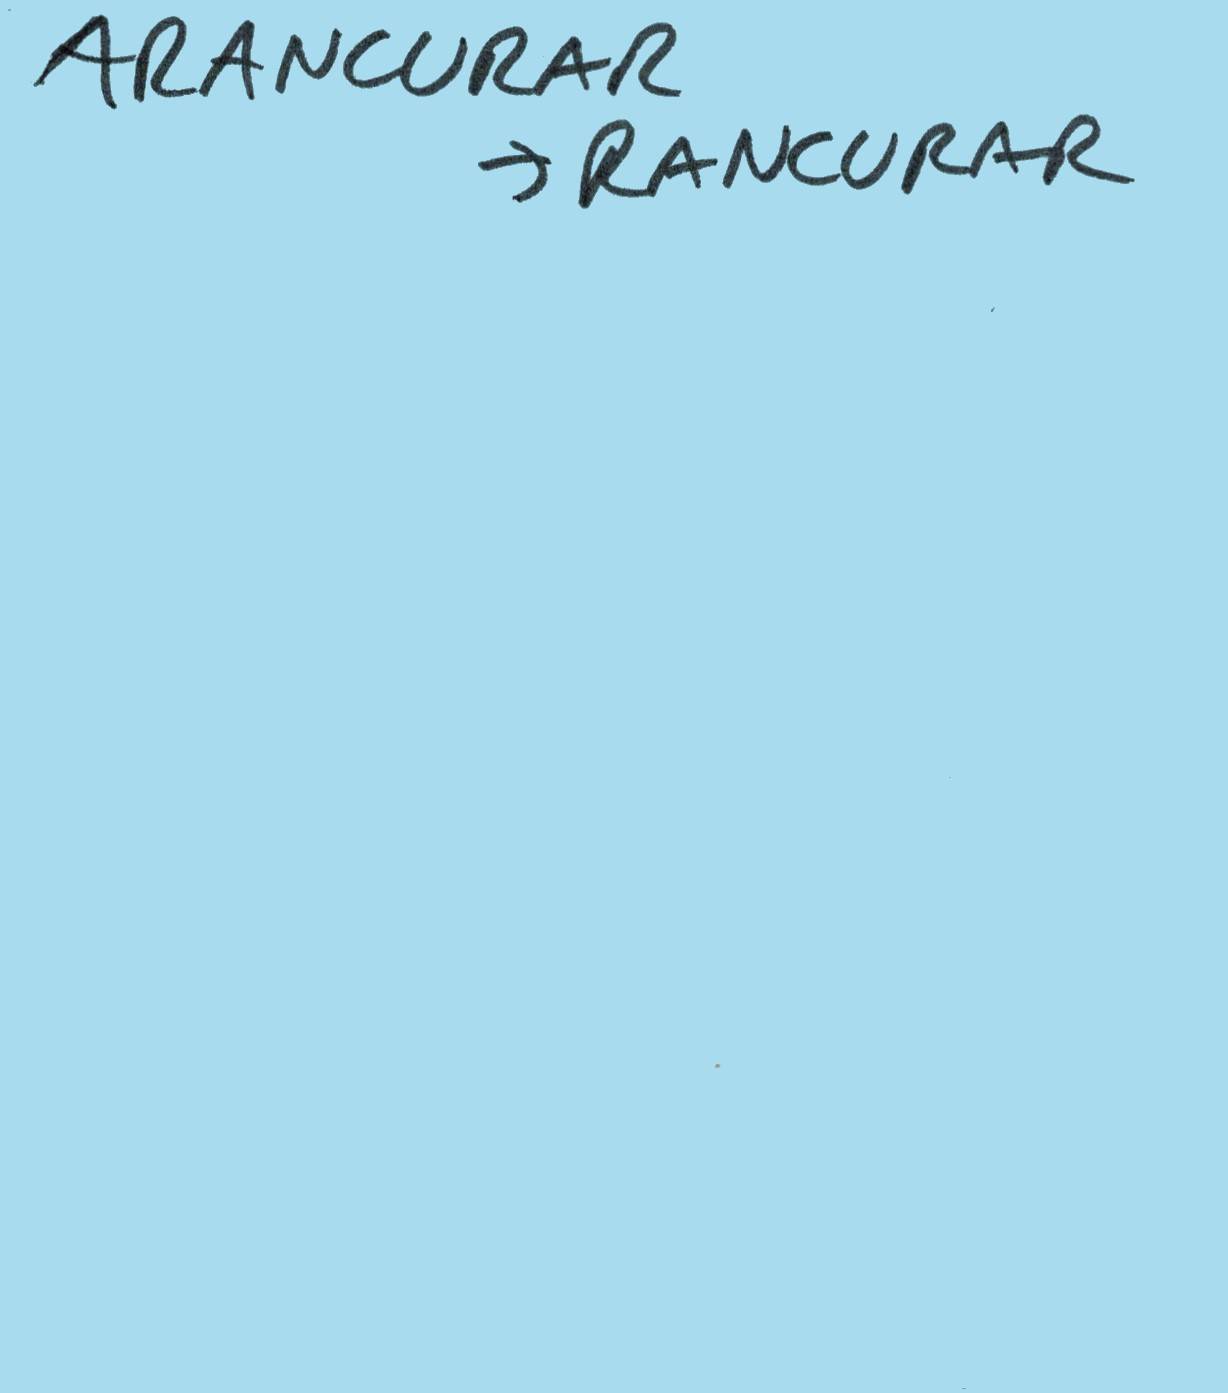 ARANCURAR
→ RANCURAR